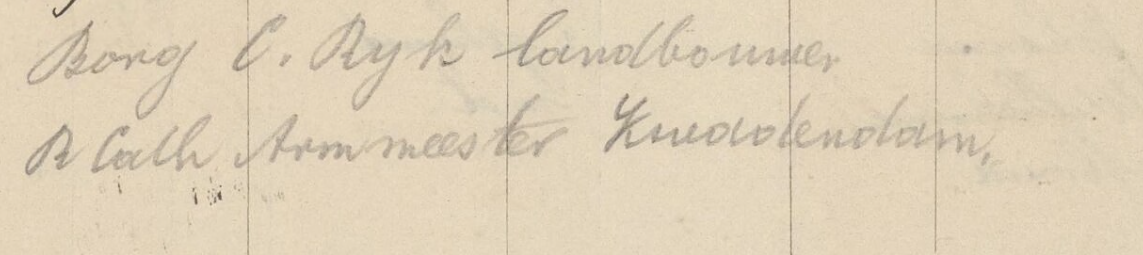 Borg C. Ryk landbouwer
R Cath Armmeester Kwadendam,